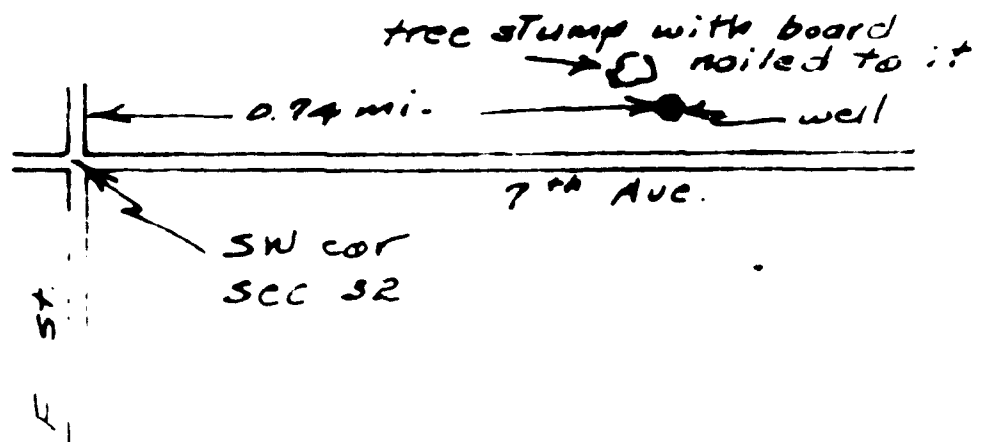 tree stump with board
nailed to it
0.74 mi.
well
7th Ave.
SW cor
sec 32
F St.